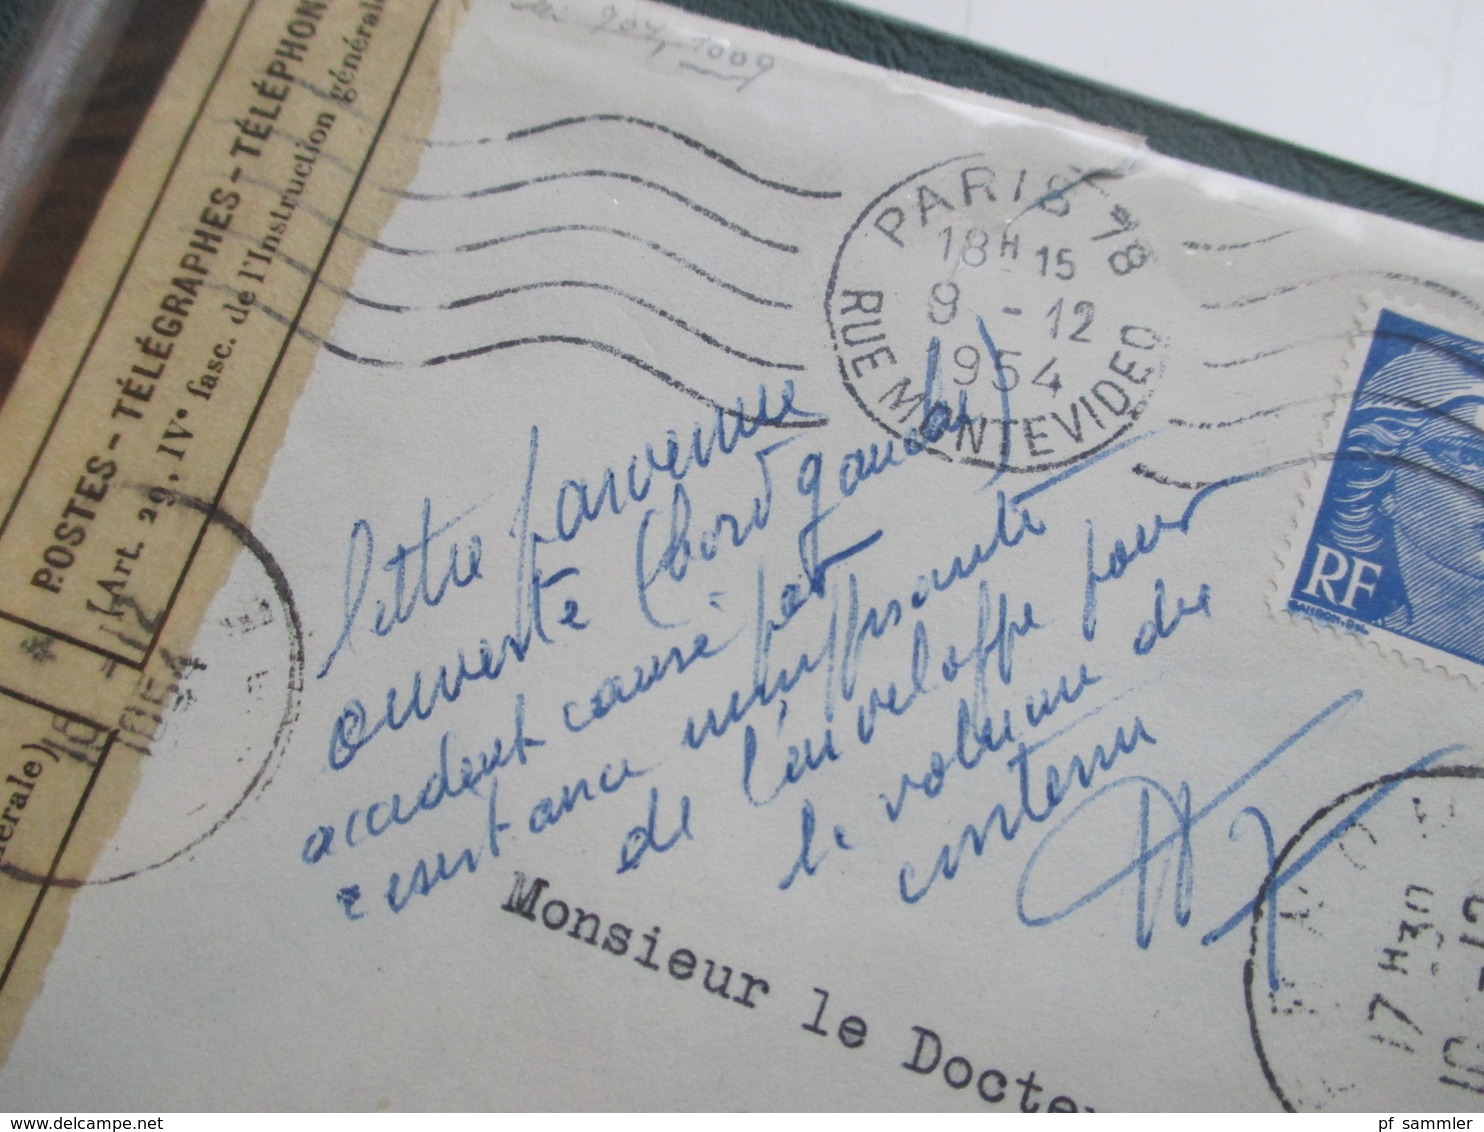 1009
POSTES - TÉLÉGRAPHES - TÉLÉPHON
(Art. 29, IVe fasc. de l'Instruction générale
nérale)
PARIS 78
18H 15
9 - 12
1954
RUE MONTEVIDEO
RF
GANDON-DEL.
lettre parvenue
ouverte (bord gauche)
accident causé par
resistance insuffisante
de l'enveloppe pour
le volume du
contenu
16 -12
1954
Monsieur le Docte
17H30
10 -12
pf_sammler